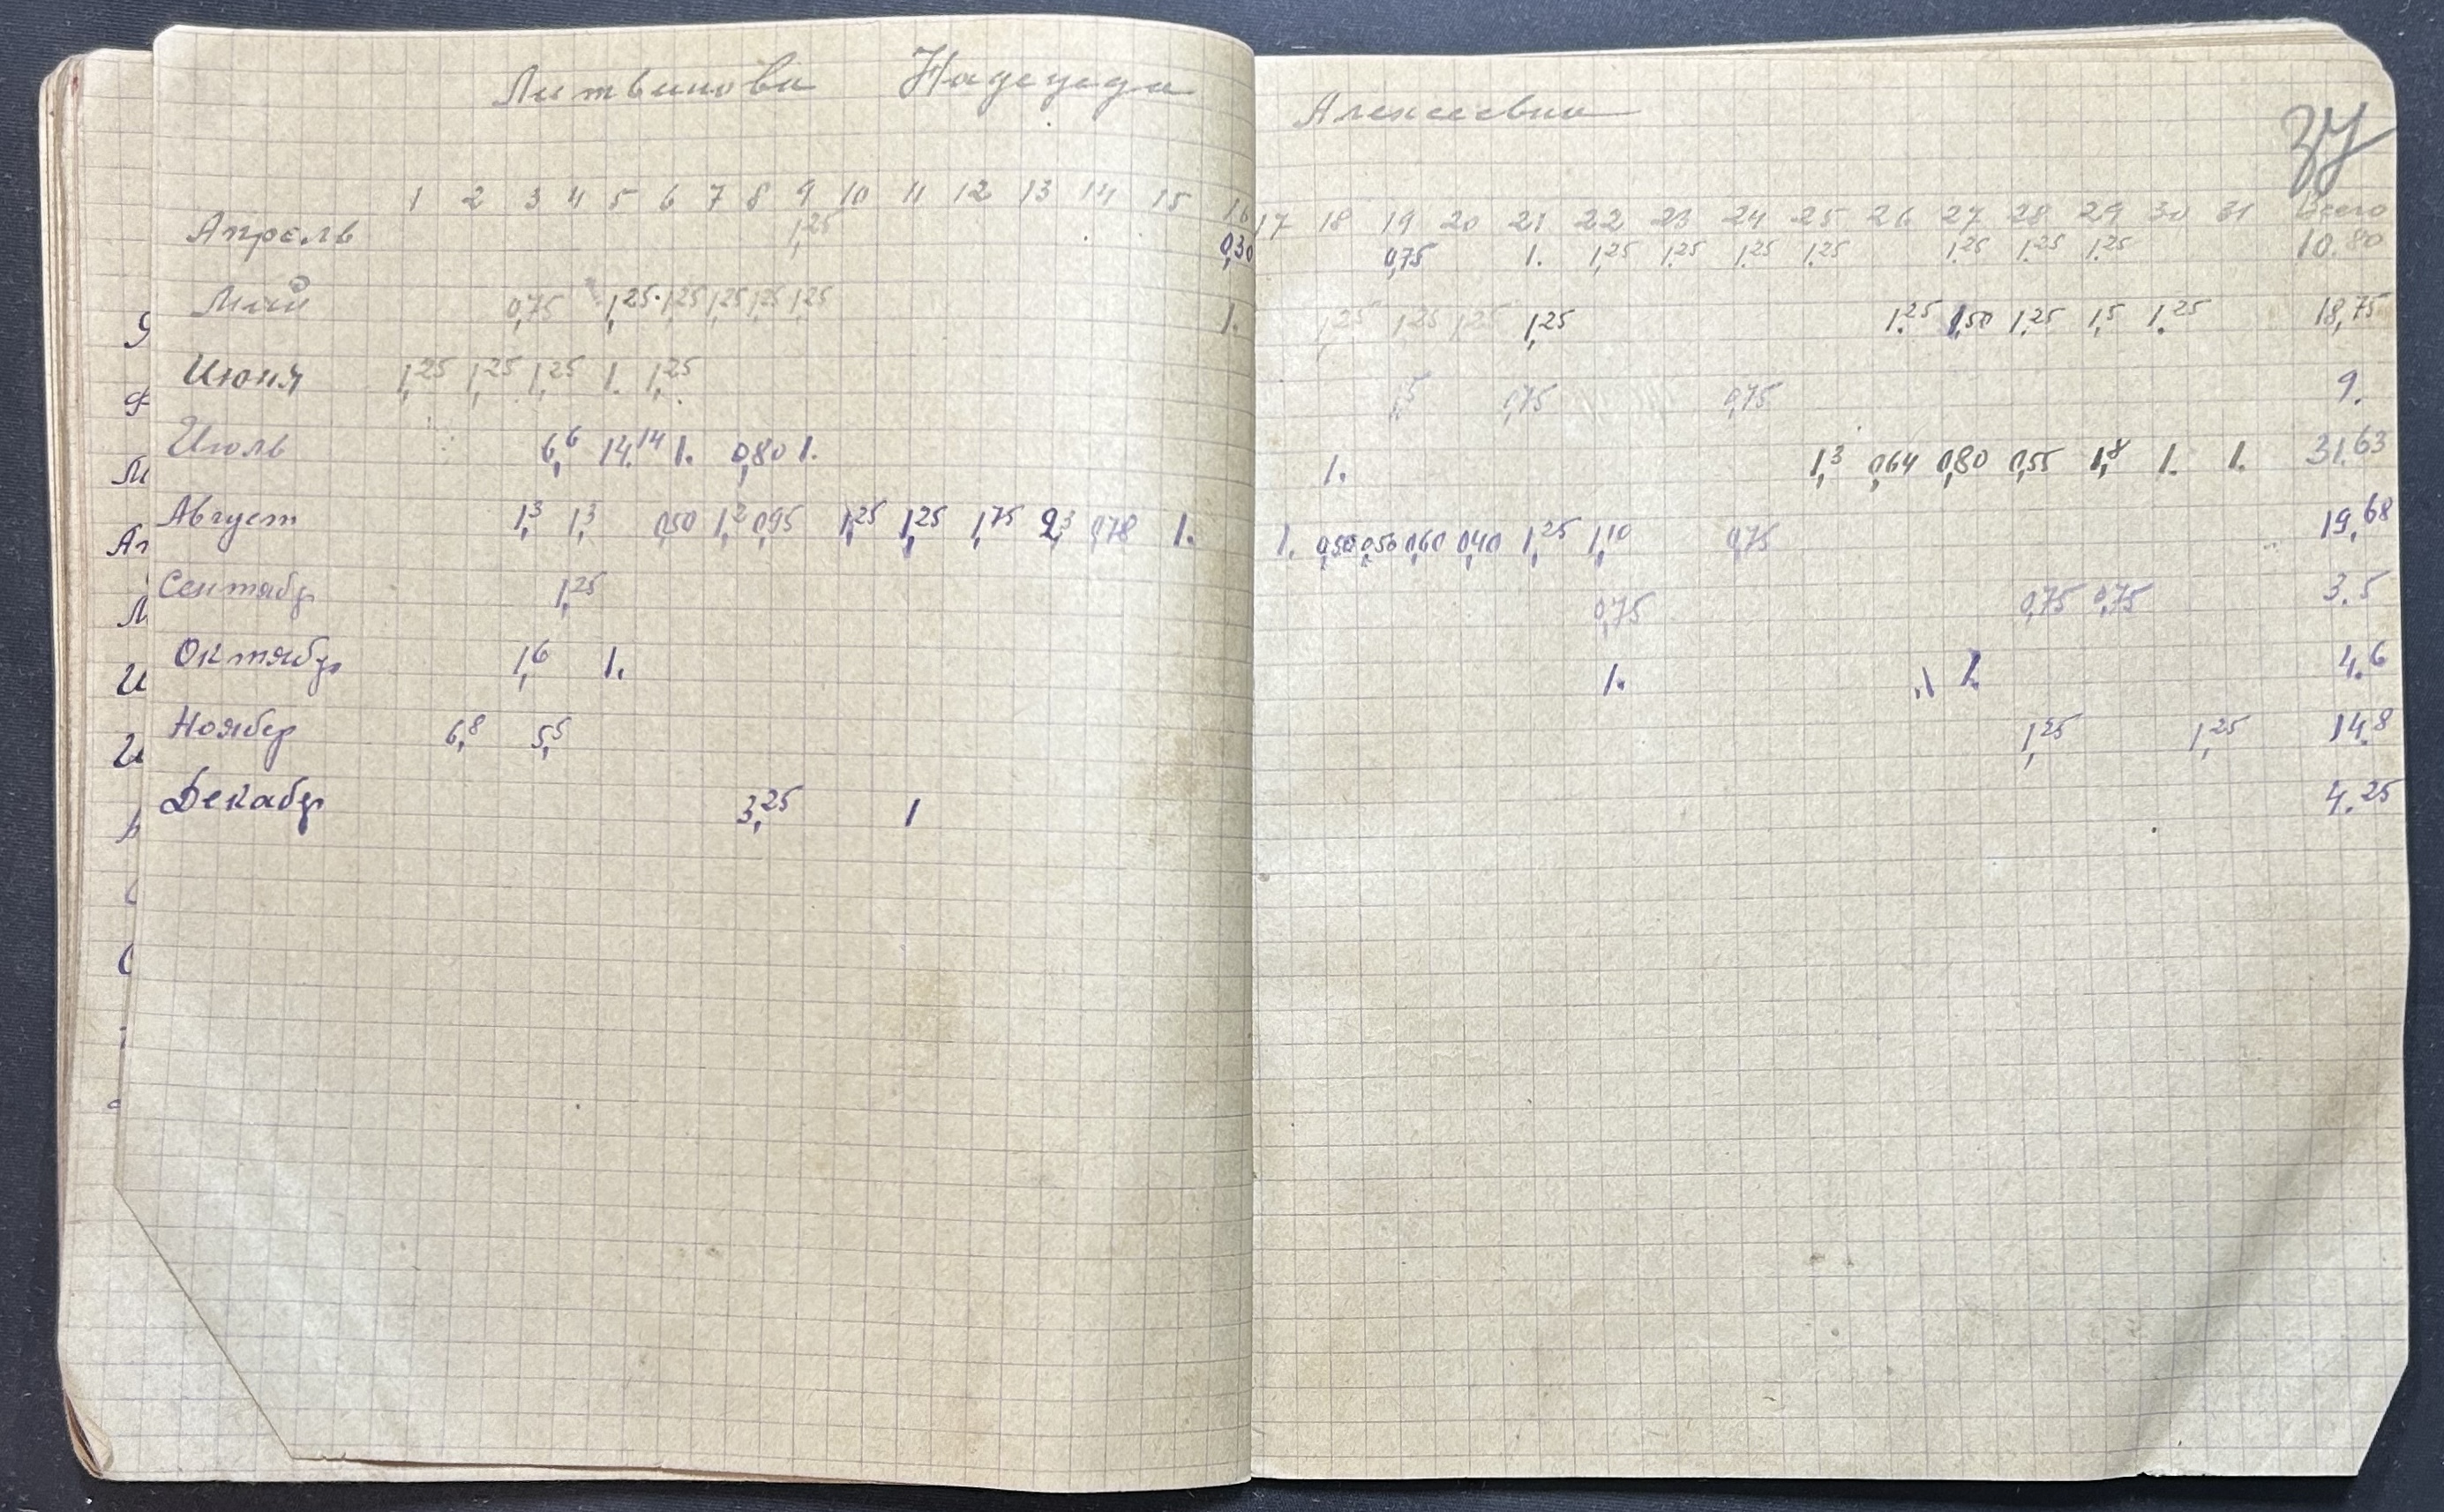 Литвинова Надежда Алексеевна
37
1 2 3 4 5 6 7 8 9 10 11 12 13 14 15 16 17 18 19 20 21 22 23 24 25 26 27 28 29 30 31 Всего
Апрель 1,25 0,30 0,75 1. 1,25 1,25 1,25 1,25 1,25 1,25 1,25 10.80
Май 0,75 1,25 1,25 1,25 1,25 1,25 1. 1,25 1,25 1,25 1,25 1,25 1,50 1,25 1,5 1,25 18,75
Июня 1,25 1,25 1,25 1. 1,25 1,5 0,75 0,75 9.
Июль 6,6 14,14 1. 0,80 1. 1. 1,3 0,64 0,80 0,55 1,8 1. 1. 31.63
Август 1,3 1,3 0,50 1,2 0,95 1,25 1,25 1,75 2,3 0,78 1. 1. 0,50 0,56 0,60 0,40 1,25 1,10 0,75 19,68
Сентябр 1,25 0,75 0,75 0,75 3.5
Октябр 1,6 1. 1. 1. 4.6
Ноябер 6,8 5,5 1,25 1,25 14,8
Декабр 3,25 1 4.25